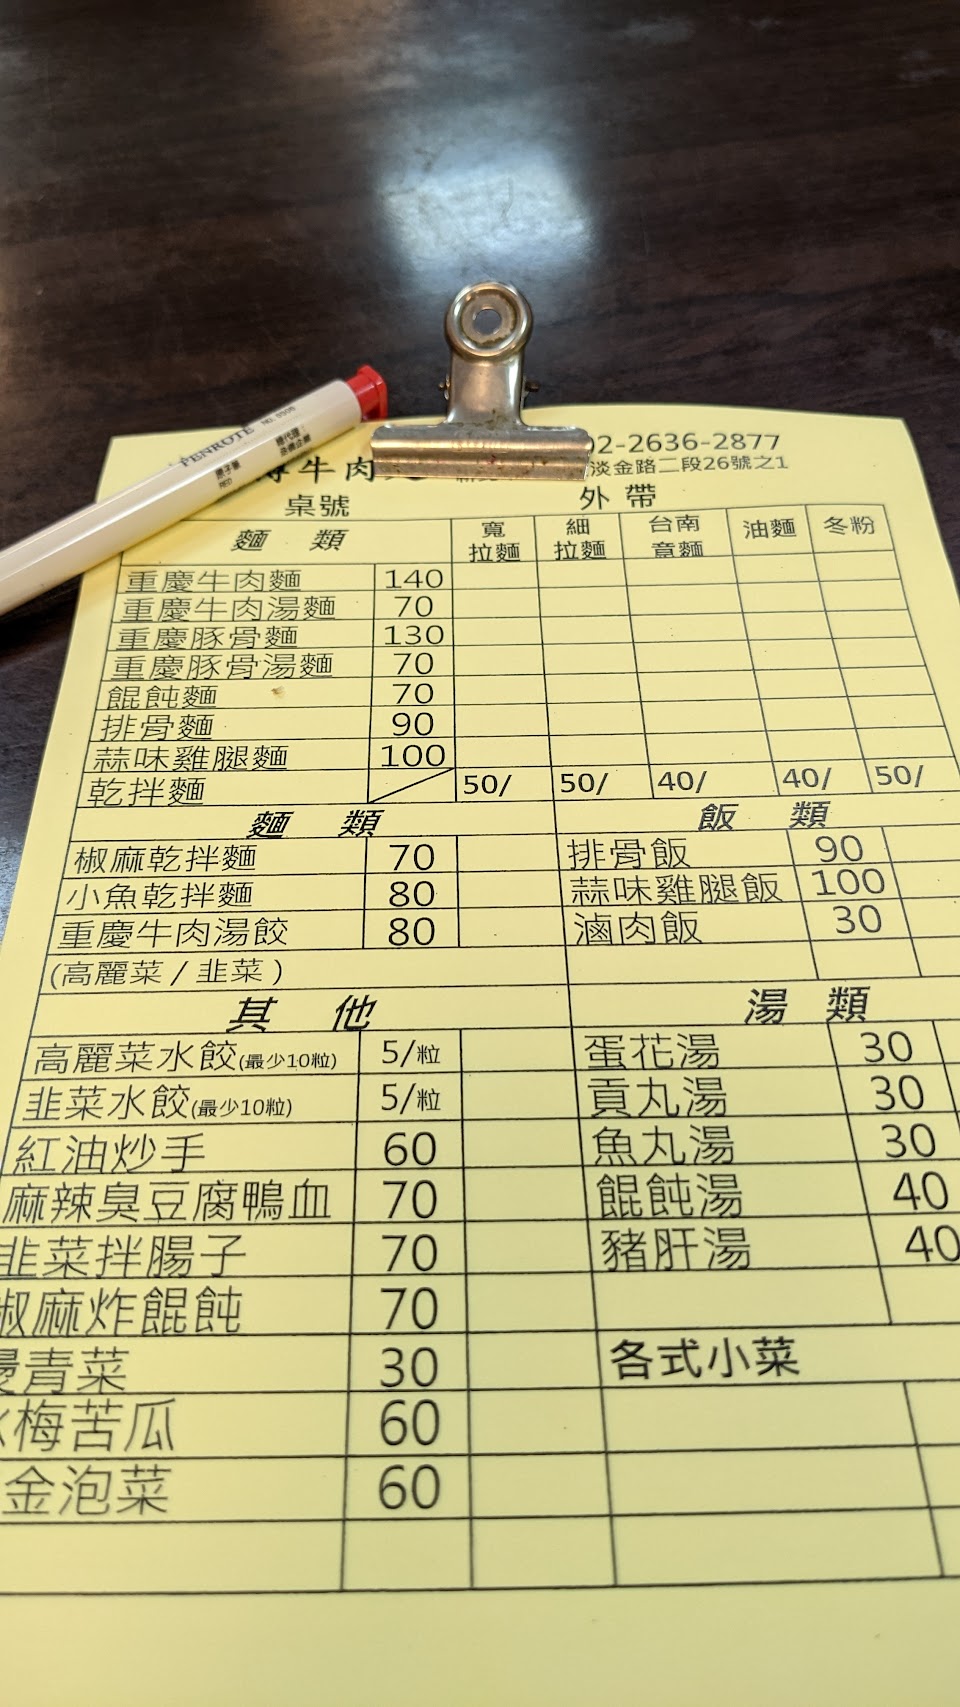 PENROTE NO. 5506
02-2636-2877
牛肉
淡金路二段26號之1
桌號 外帶
麵 類 寬拉麵 細拉麵 台南意麵 油麵 冬粉
重慶牛肉麵 140
重慶牛肉湯麵 70
重慶豚骨麵 130
重慶豚骨湯麵 70
餛飩麵 70
排骨麵 90
蒜味雞腿麵 100
乾拌麵 50/ 50/ 40/ 40/ 50/
麵 類 飯 類
椒麻乾拌麵 70 排骨飯 90
小魚乾拌麵 80 蒜味雞腿飯 100
重慶牛肉湯餃 80 滷肉飯 30
(高麗菜/韭菜)
其 他 湯 類
高麗菜水餃(最少10粒) 5/粒 蛋花湯 30
韭菜水餃(最少10粒) 5/粒 貢丸湯 30
紅油炒手 60 魚丸湯 30
麻辣臭豆腐鴨血 70 餛飩湯 40
韭菜拌腸子 70 豬肝湯 40
椒麻炸餛飩 70
青菜 30 各式小菜
梅苦瓜 60
金泡菜 60